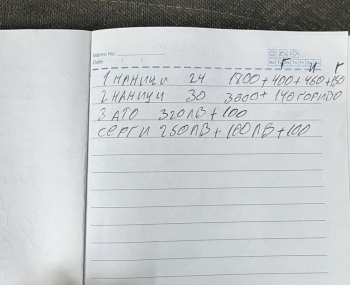 Memo No.
Date
Г И Г
1 НАНИЦИ 24 1800+400+450+150
2 НАНИЦИ 30 3000+140 ГОРИВО
3 АТО 320ЛВ+100
СЕРГИ 250ЛВ+100ЛВ+100